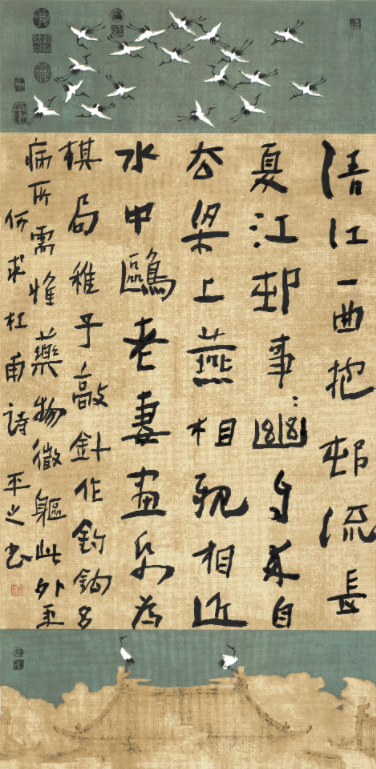 清江一曲抱邨流長
夏江邨事〻幽自来自
厺梁上燕相親相近
水中鷗老妻畫紙為
棋局稚子敲針作釣鈎多
病所需惟藥物微軀此外更
何求杜甫詩 平之书